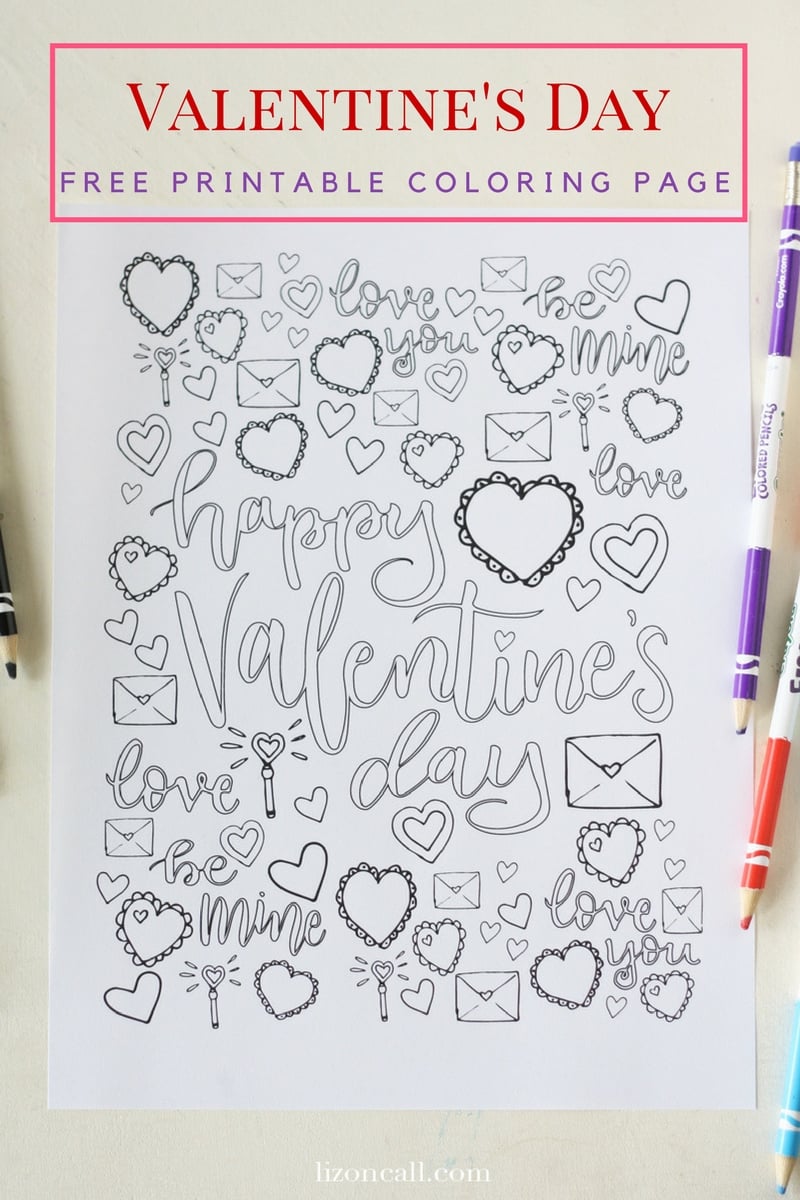 VALENTINE'S DAY
FREE PRINTABLE COLORING PAGE
love you
be mine
love
happy
Valentine's
day
love
be mine
love you
Crayola.com
COLORED PENCILS
lizoncall.com